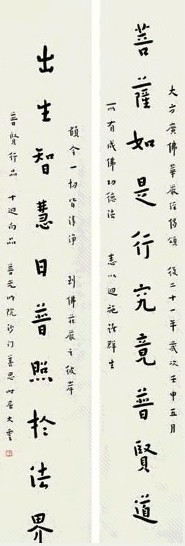 大方廣佛華嚴經偈頌 後二十一年歲次壬申五月
菩薩如是行究竟普賢道
所有成佛功德法 悉以迴施諸群生
願令一切皆清淨 到佛莊嚴之彼岸
出生智慧日普照於法界
普賢行品 十迴向品 普光明院沙門善思時居大雲